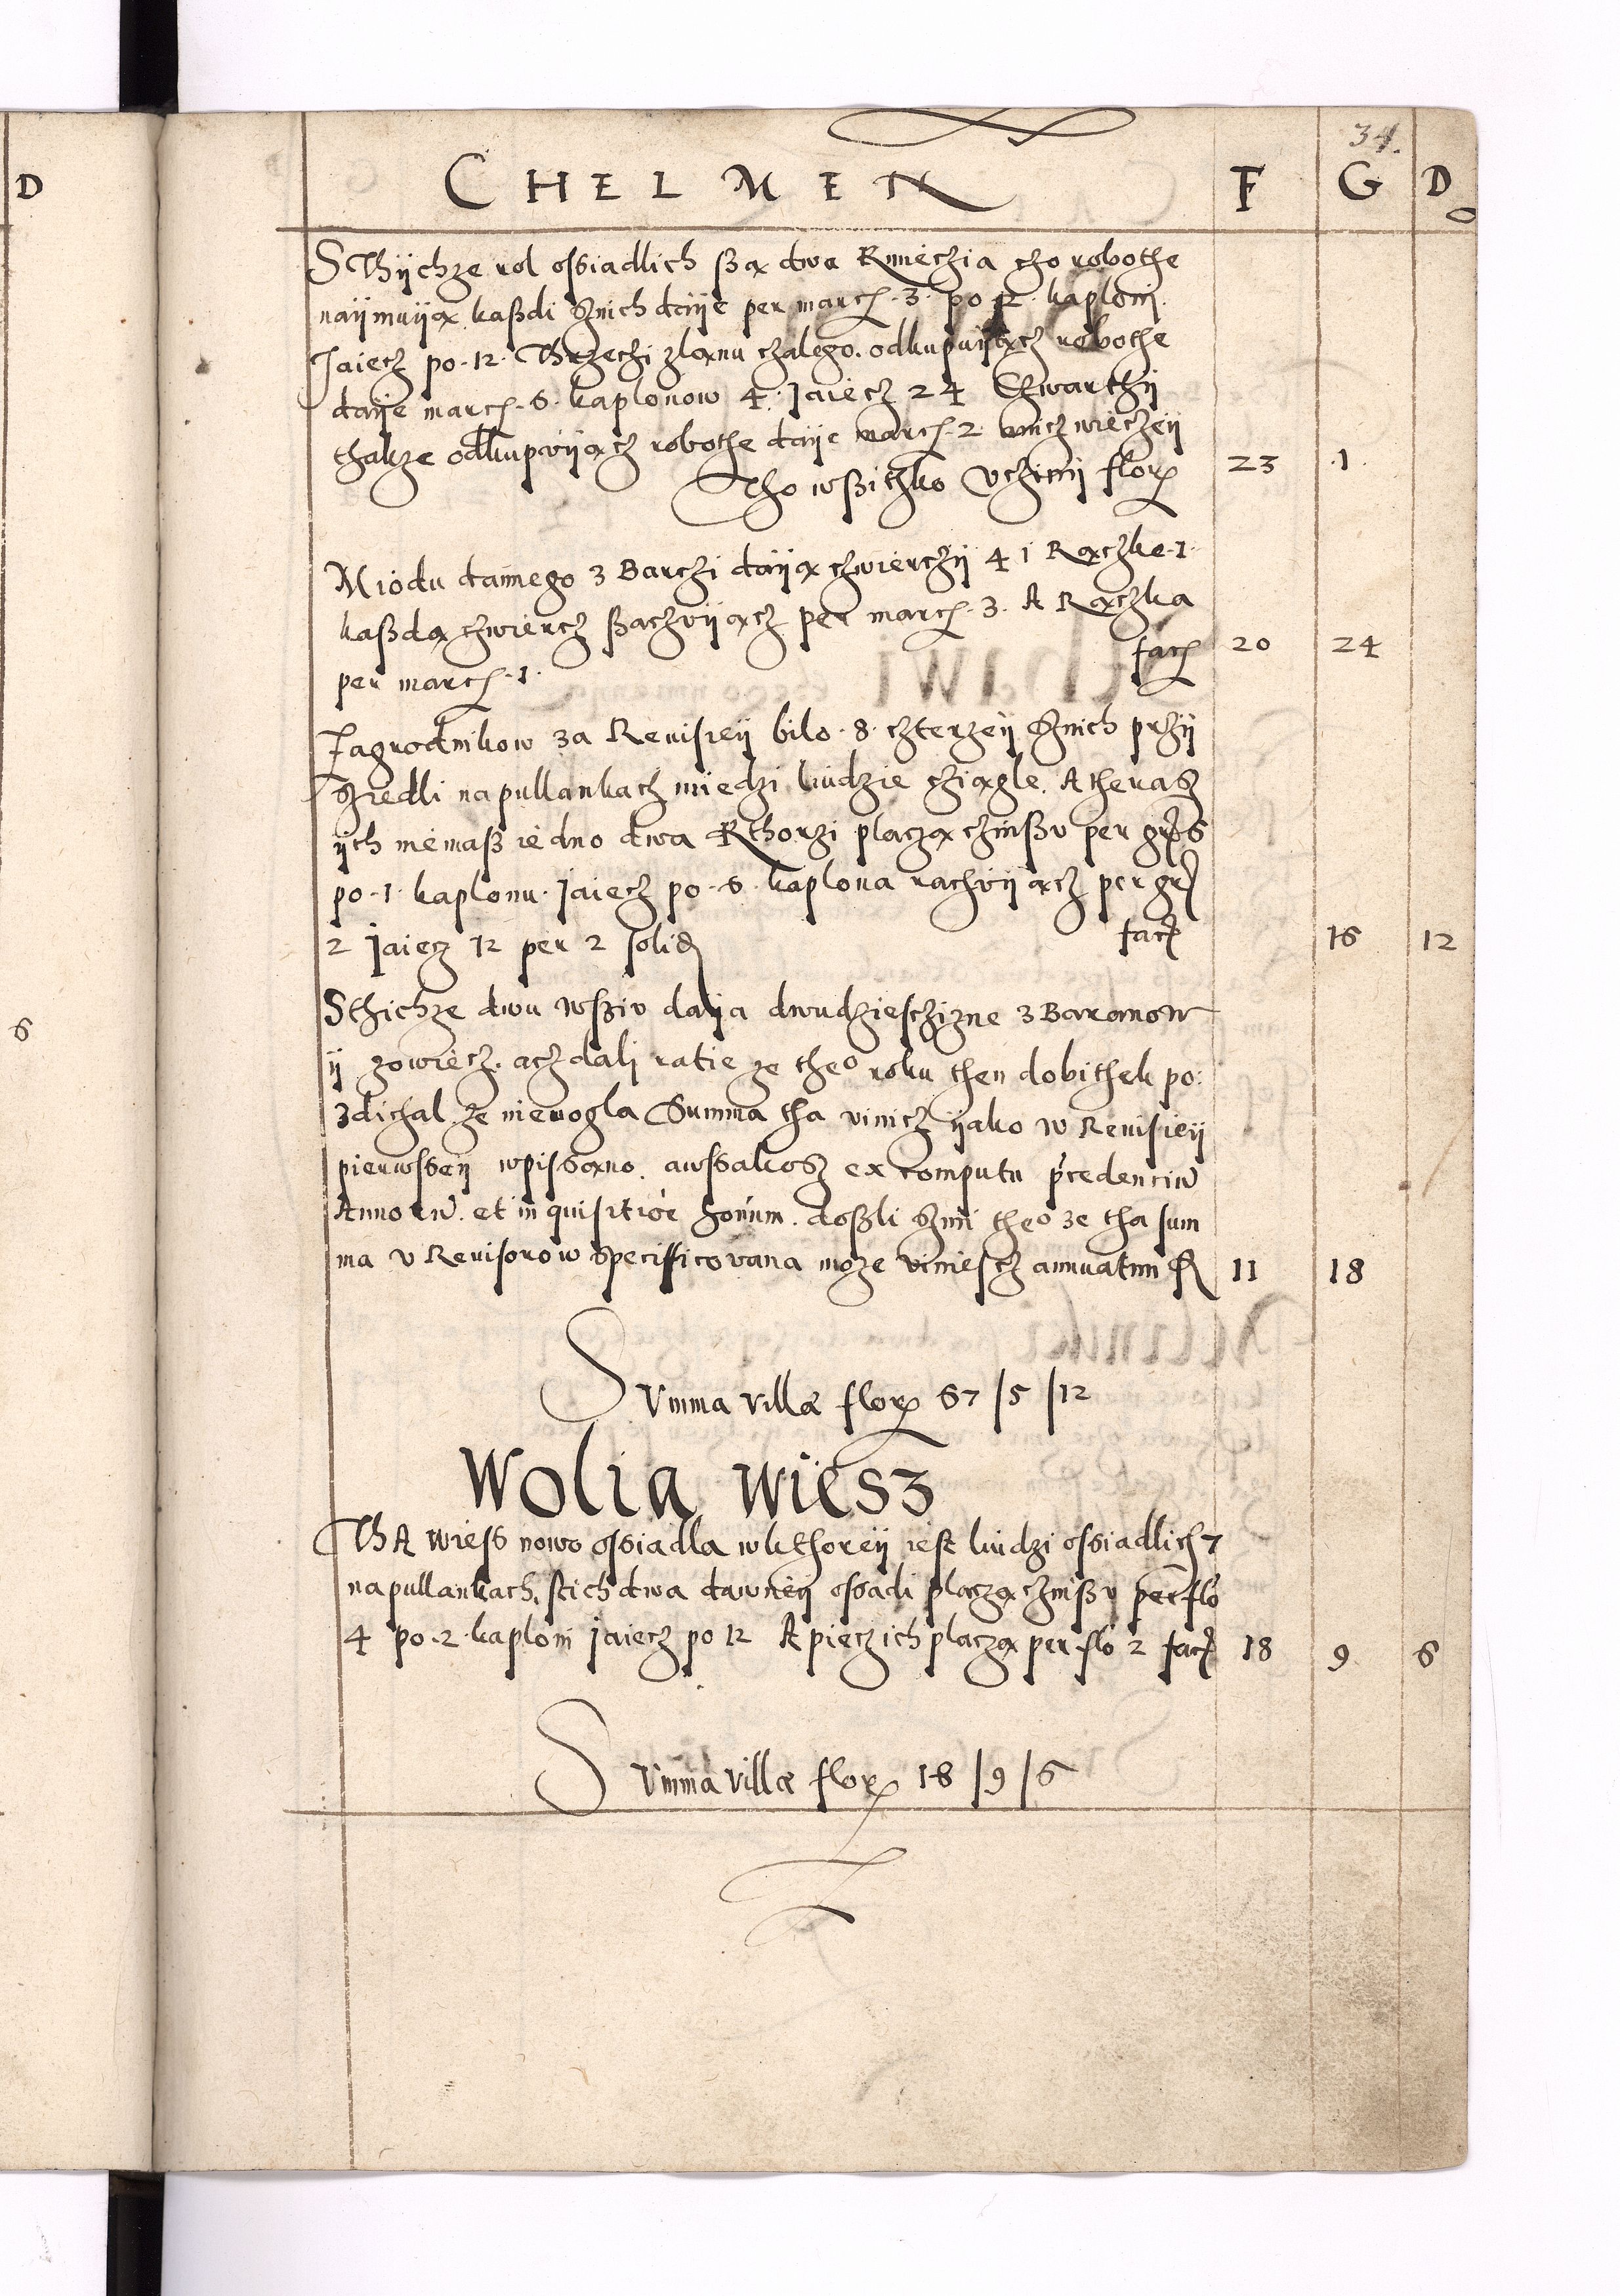 34.
CHELMEN F G D
D
SThÿchze rol ossiadlich ßą dwa Kmiechia cho robothe
naÿmuÿą kaßdi Snich daÿe per marcę 3 po 2 kaploni
Jaiecz po 12 Thrzechi zlanu czalego odkupuÿącz robothe
daÿe marcę 6 kaplonow 4 Jaiecz 24 Czwarthÿ
thakze odkupuÿącz robothe daÿe marcę 2 wieczeÿ
Tho wßitzko Vchinÿ flor 23 1
Miodu danego 3 Barczi daÿą chwierchÿ 4 1 Rączke 1
kaßdą chwiercz ßaczuÿącz per marcę 3 A Rączka
per marcę 1 fac 20 24
Zagrodnikow za Reuisieÿ bilo 8 czterzeÿ Snich przÿ
Siedli na pullankach miedzi ludzie chiągle. A theras
ÿch niemaß iedno dwa Kthorzi placzą chinßu per gr 6
po 1 kaplonu Jaiecz po 6 kaplona rachuÿącz per gr
2 Jaiecz 12 per 2 solid fac 16 12
Sthichze dwu wßiu daÿa dwudziesczizne 3 Baranow
ÿ zowiecz. acz dali ratie ze theo roku then dobithek po:
zdichal ze niemogla Summa tha vinicz ÿako w Reuisieÿ
pierwsseÿ wpissano. awssakosz ex computu pcedenciu
Annoru. et inquisitioe honum. doßli Snimi theo ze tha sum
ma v Reuisorow specifficowana moze viniescz annuatim fl 11 18
SVmma villæ flor 67 / 5 / 12
Wolia wiesz
ThA wiess nowo ossiadla wkthoreÿ iest ludzi ossiadlich 7
na pullankach, stich dwa dawneÿ ossadi placzą chinßu per flo
4 po 2 kaploni Jaiecz po 12 A piecz ich placzą per flo 2 fac 18 9 6
SVmma villæ flor 18 / 9 / 6
6